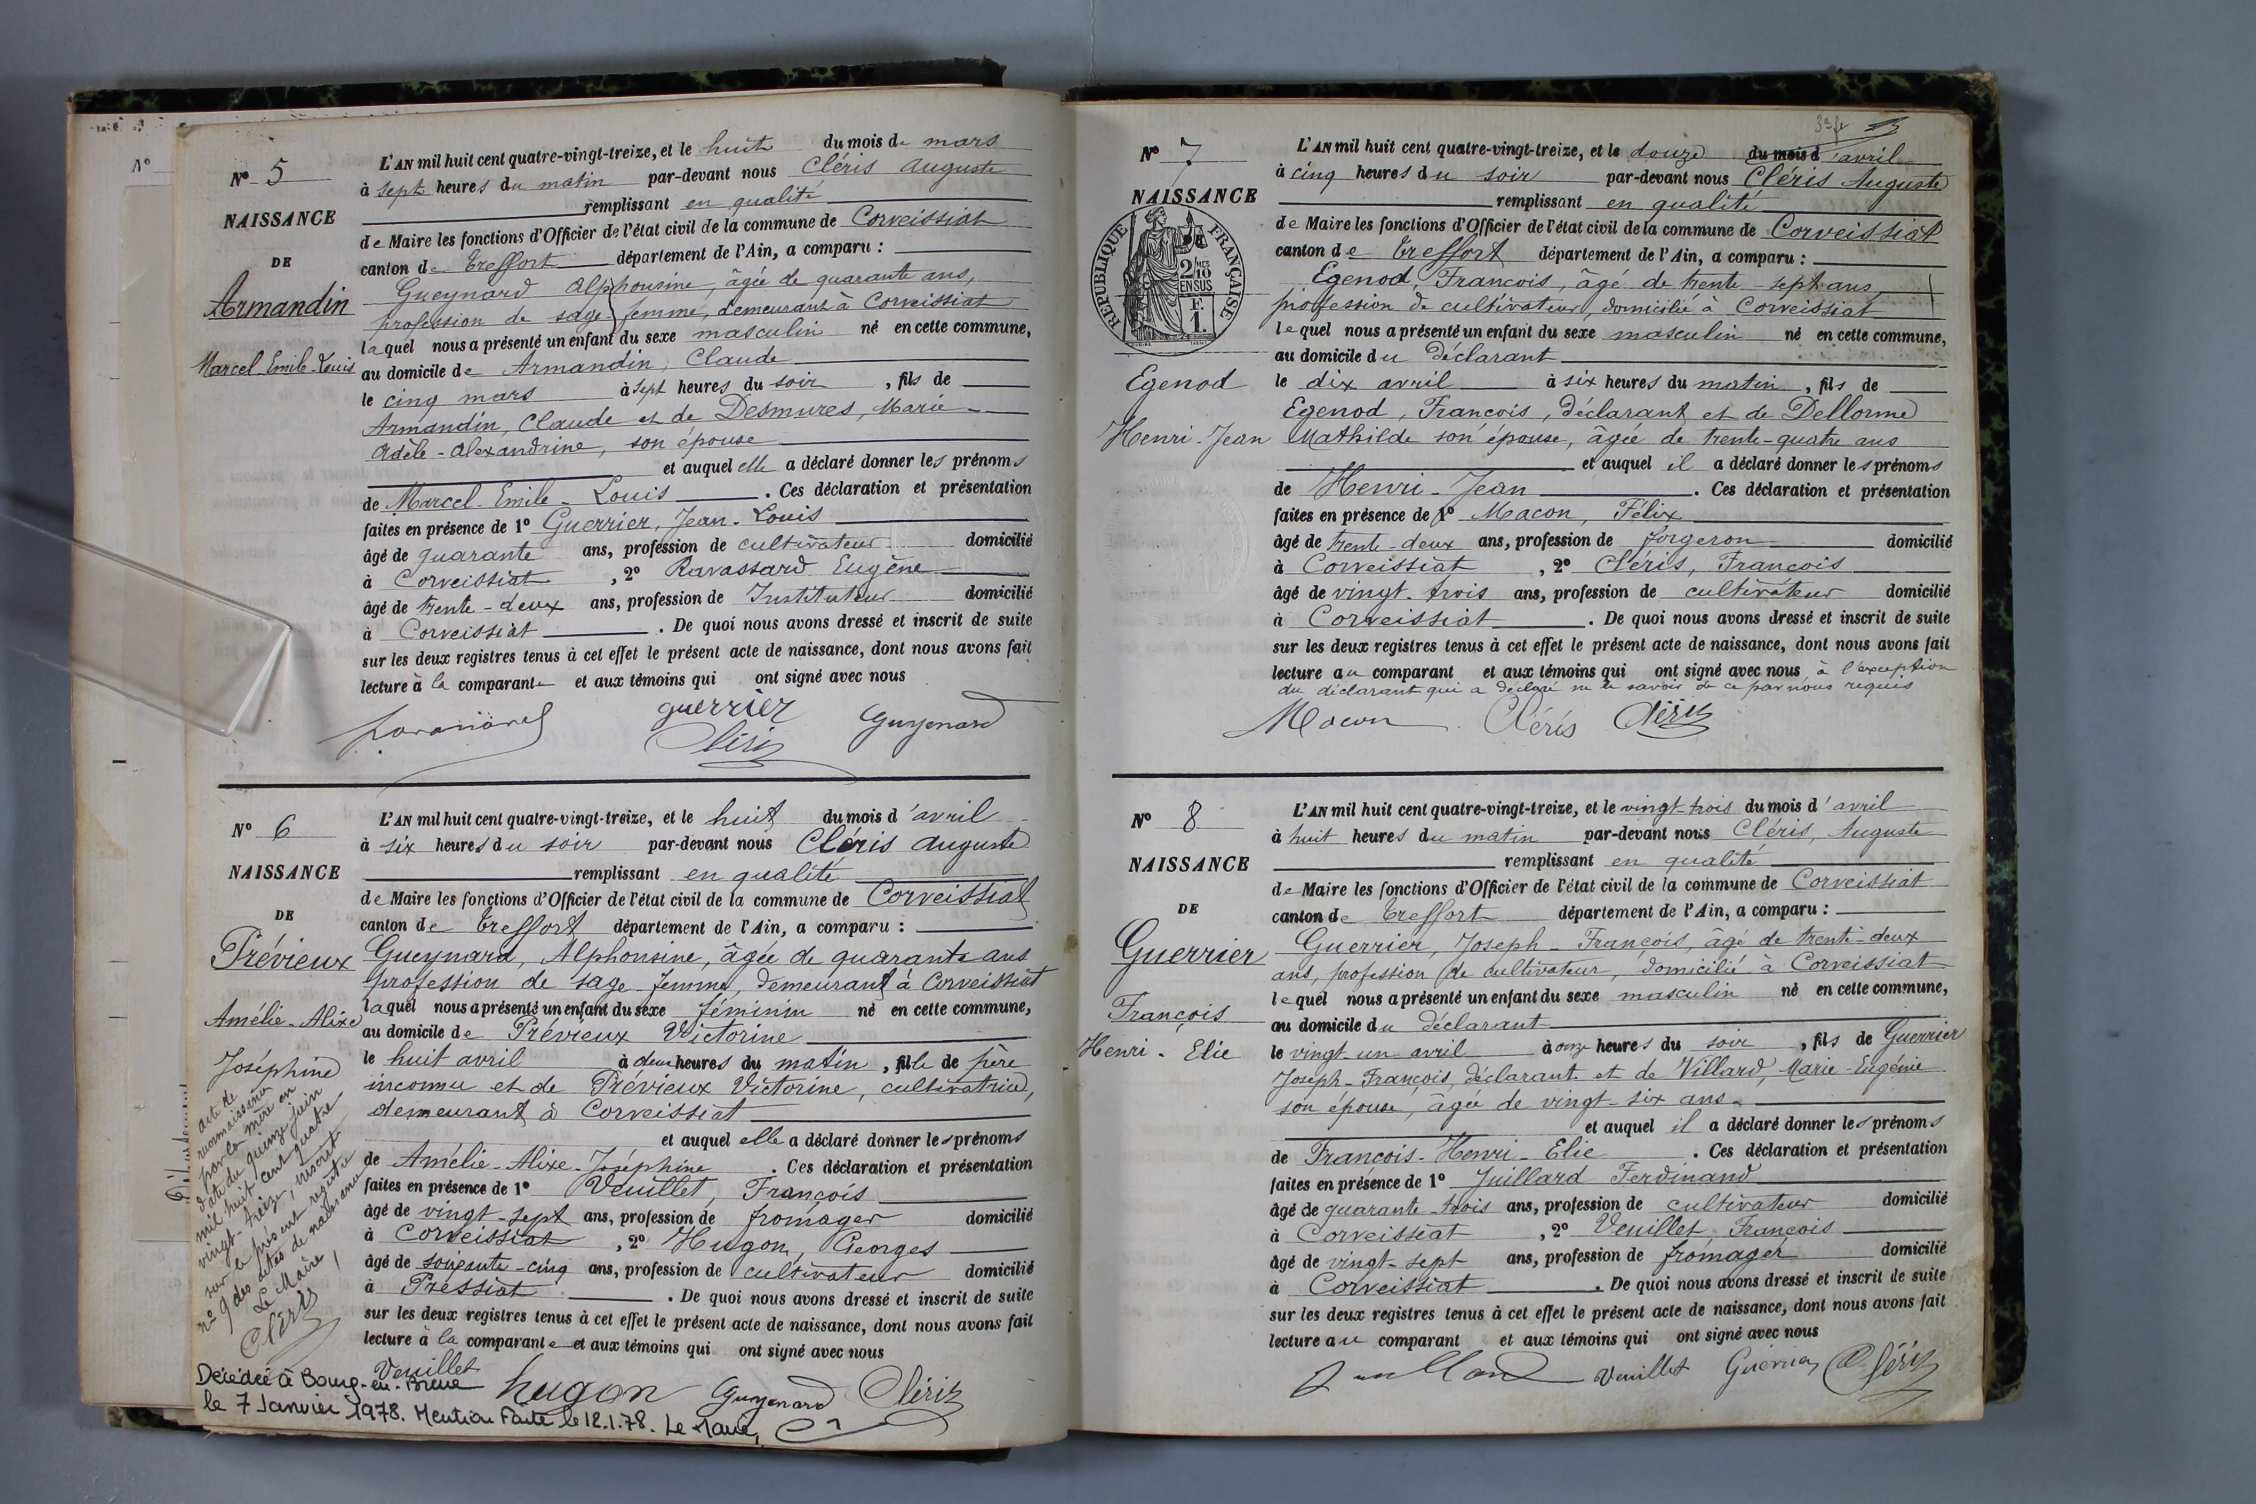 N° 5
NAISSANCE
DE
Armandin
Marcel-Emile-Louis
L'AN mil huit cent quatre-vingt-treize, et le huit du mois de mars
à sept heures du matin par-devant nous Cléris Auguste
remplissant en qualité
de Maire les fonctions d'Officier de l'état civil de la commune de Corveissiat
canton de Treffort département de l'Ain, a comparu :
Gueynard Alphonsine, âgée de quarante ans,
profession de sage-femme, demeurant à Corveissiat
laquel nous a présenté un enfant du sexe masculin né en cette commune,
au domicile de Armandin, Claude
le cinq mars à sept heures du soir, fils de
Armandin, Claude et de Desmures, Marie-
Adèle-Alexandrine, son épouse
et auquel elle a déclaré donner les prénoms
de Marcel-Emile-Louis. Ces déclaration et présentation
faites en présence de 1° Guerrier, Jean-Louis
âgé de quarante ans, profession de cultivateur domicilié
à Corveissiat, 2° Ravassard Eugène
âgé de trente-deux ans, profession de Instituteur domicilié
à Corveissiat. De quoi nous avons dressé et inscrit de suite
sur les deux registres tenus à cet effet le présent acte de naissance, dont nous avons fait
lecture à la comparante et aux témoins qui ont signé avec nous
guerrier Guyenard
Cléris
N° 6
NAISSANCE
DE
Prévieux
Amélie-Alixe
Joséphine
acte de
reconnaissance
par la mère en
date du quinze juin
mil huit cent quatre
vingt-treize, inscrit
sur le présent registre
n° 9 des actes de naissance
Le Maire,
Cléris
L'AN mil huit cent quatre-vingt-treize, et le huit du mois d'avril
à six heures du soir par-devant nous Cléris Auguste
remplissant en qualité
de Maire les fonctions d'Officier de l'état civil de la commune de Corveissiat
canton de Treffort département de l'Ain, a comparu :
Gueynard, Alphonsine, âgée de quarante ans
profession de sage-femme, demeurant à Corveissiat
laquel nous a présenté un enfant du sexe féminin né en cette commune,
au domicile de Prévieux Victorine
le huit avril à deux heures du matin, fille de père
inconnu et de Prévieux Victorine, cultivatrice,
demeurant à Corveissiat
et auquel elle a déclaré donner les prénoms
de Amélie-Alixe-Joséphine. Ces déclaration et présentation
faites en présence de 1° Veuillet, François
âgé de vingt-sept ans, profession de fromager domicilié
à Corveissiat, 2° Hugon, Georges
âgé de soixante-cinq ans, profession de cultivateur domicilié
à Pressiat. De quoi nous avons dressé et inscrit de suite
sur les deux registres tenus à cet effet le présent acte de naissance, dont nous avons fait
lecture à la comparante et aux témoins qui ont signé avec nous
Veuillet hugon Guyenard Cléris
Décédée à Bourg-en-Bresse
le 7 Janvier 1978. Mention faite le 12.1.78. Le Maire,
N° 7
NAISSANCE
RÉPUBLIQUE FRANÇAISE
2/10 MES
EN SUS
F.
1.
Egenod
Henri-Jean
L'AN mil huit cent quatre-vingt-treize, et le douze du mois d'avril
à cinq heures du soir par-devant nous Cléris Auguste
remplissant en qualité
de Maire les fonctions d'Officier de l'état civil de la commune de Corveissiat
canton de Treffort département de l'Ain, a comparu :
Egenod, François, âgé de trente-sept ans,
profession de cultivateur, domicilié à Corveissiat
lequel nous a présenté un enfant du sexe masculin né en cette commune,
au domicile du déclarant
le dix avril à six heures du matin, fils de
Egenod, François, déclarant et de Dellorme
Mathilde son épouse, âgée de trente-quatre ans
et auquel il a déclaré donner les prénoms
de Henri-Jean. Ces déclaration et présentation
faites en présence de 1° Macon, Félix
âgé de trente-deux ans, profession de forgeron domicilié
à Corveissiat, 2° Cléris, François
âgé de vingt-trois ans, profession de cultivateur domicilié
à Corveissiat. De quoi nous avons dressé et inscrit de suite
sur les deux registres tenus à cet effet le présent acte de naissance, dont nous avons fait
lecture au comparant et aux témoins qui ont signé avec nous, à l'exception
du déclarant qui a déclaré ne le savoir de ce par nous requis
Macon Cléris Cléris
N° 8
NAISSANCE
DE
Guerrier
François
Henri-Elie
L'AN mil huit cent quatre-vingt-treize, et le vingt-trois du mois d'avril
à huit heures du matin par-devant nous Cléris, Auguste
remplissant en qualité
de Maire les fonctions d'Officier de l'état civil de la commune de Corveissiat
canton de Treffort département de l'Ain, a comparu :
Guerrier, Joseph-François, âgé de trente-deux
ans, profession de cultivateur, domicilié à Corveissiat
lequel nous a présenté un enfant du sexe masculin né en cette commune,
au domicile du déclarant
le vingt-un avril à onze heures du soir, fils de Guerrier
Joseph-François, déclarant et de Villard, Marie-Eugénie
son épouse, âgée de vingt-six ans
et auquel il a déclaré donner les prénoms
de François-Henri-Elie. Ces déclaration et présentation
faites en présence de 1° Juillard Ferdinand
âgé de quarante-trois ans, profession de cultivateur domicilié
à Corveissiat, 2° Veuillet, François
âgé de vingt-sept ans, profession de fromager domicilié
à Corveissiat. De quoi nous avons dressé et inscrit de suite
sur les deux registres tenus à cet effet le présent acte de naissance, dont nous avons fait
lecture au comparant et aux témoins qui ont signé avec nous
Juillard Veuillet Guerrier Cléris